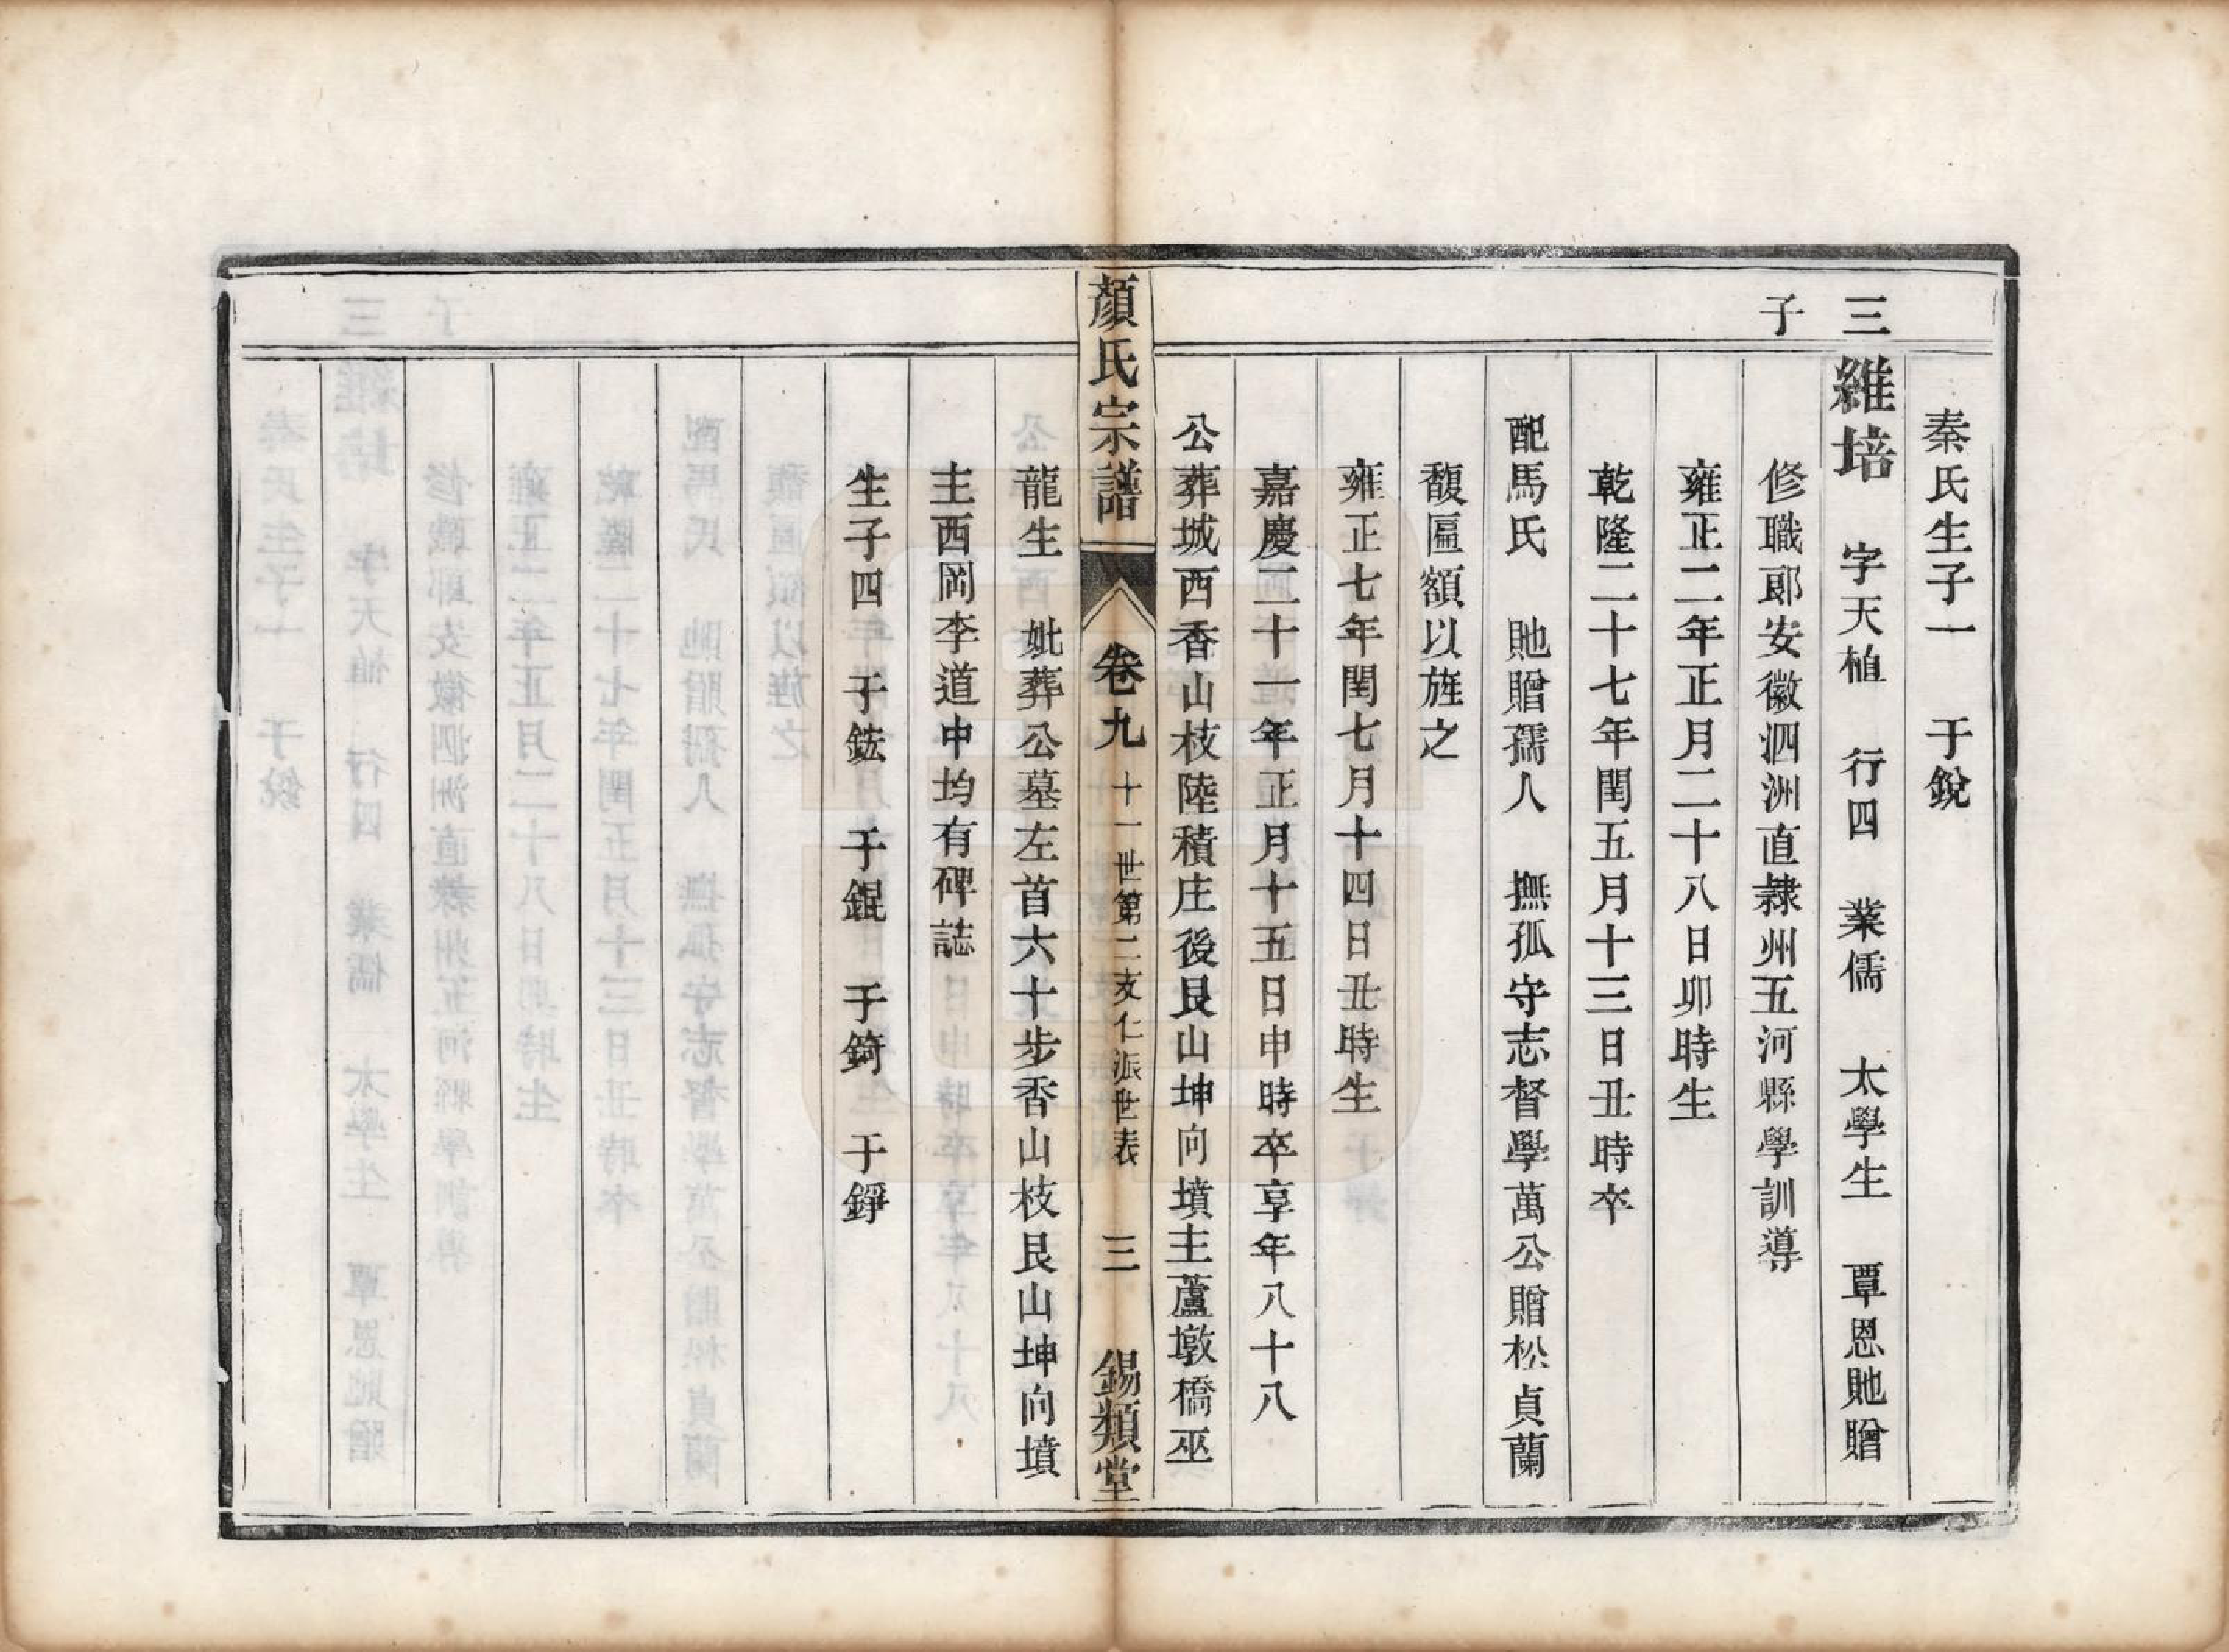 秦氏生子一　于銳
三　維培　字天植　行四　業儒　太學生　覃恩貤贈
子　修職郎安徽泗洲直隸州五河縣學訓導
雍正二年正月二十八日卯時生
乾隆二十七年閏五月十三日丑時卒
配馬氏　貤贈孺人　撫孤守志督學萬公贈松貞蘭
馥匾額以旌之
雍正七年閏七月十四日丑時生
嘉慶二十一年正月十五日申時卒享年八十八
公葬城西香山枝陸積庄後艮山坤向墳主蘆墩橋巫
顏氏宗譜　卷九　十一世第二支仁派世表　三　錫類堂
龍生　妣葬公墓左首六十步香山枝艮山坤向墳
主西岡李道中均有碑誌
生子四　于鋐　于錕　于錡　于錚